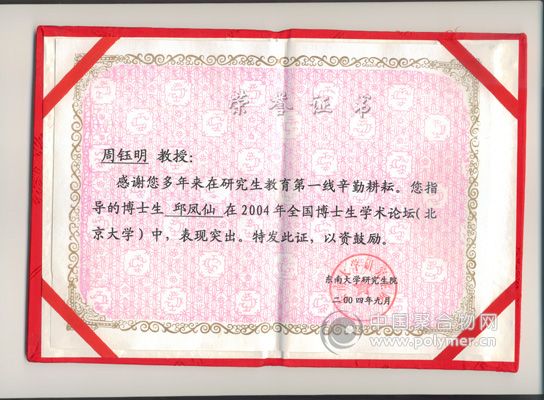 荣誉证书
周钰明 教授:
感谢您多年来在研究生教育第一线辛勤耕耘。您指
导的博士生 邱凤仙 在2004年全国博士生学术论坛(北
京大学)中,表现突出。特发此证,以资鼓励。
东南大学研究生院
二〇〇四年九月
中国聚合物网
www.polymer.cn